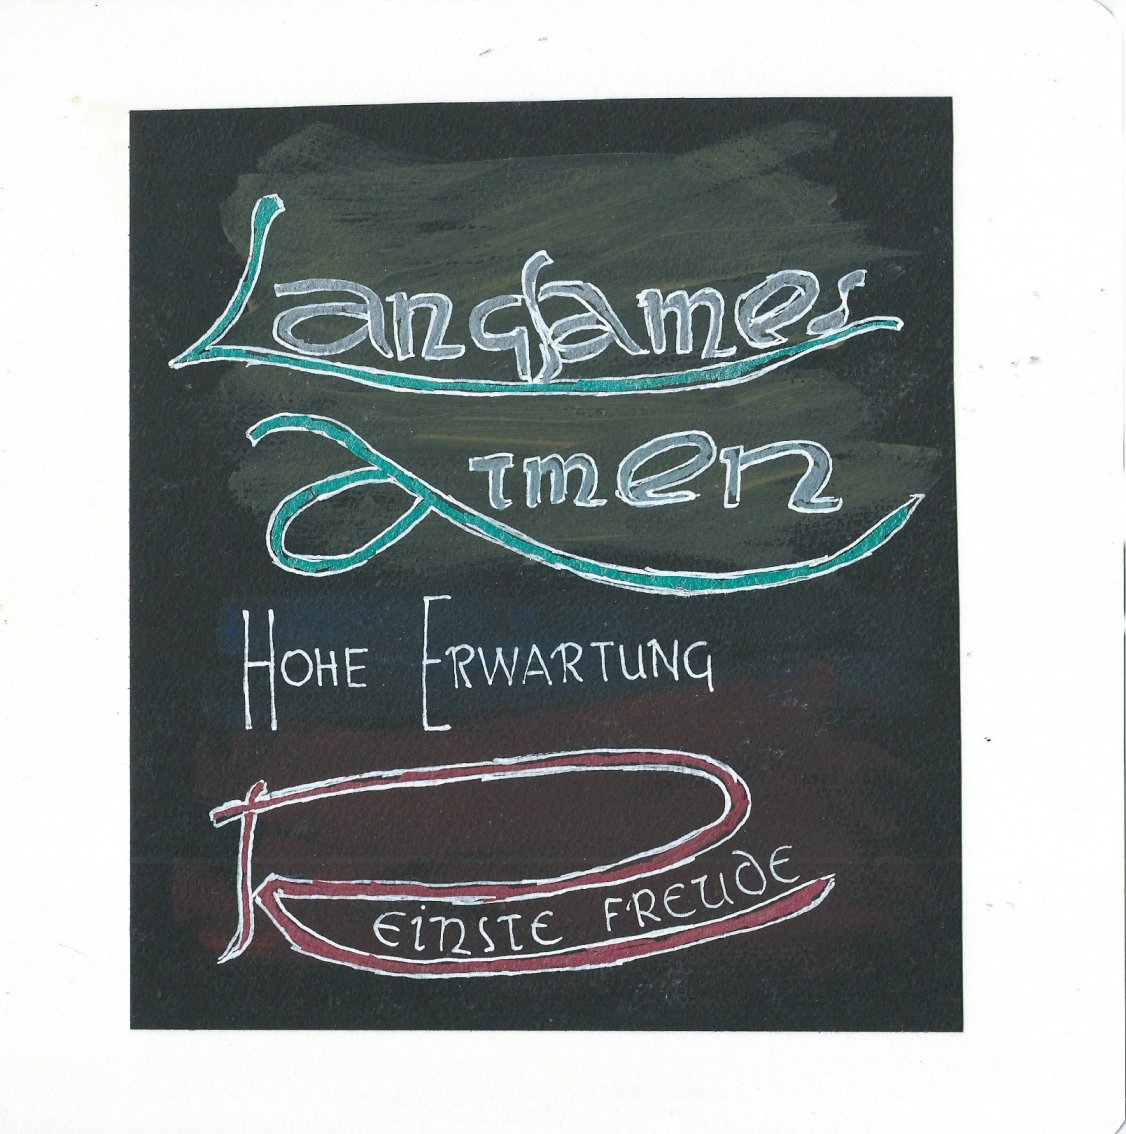 Langsames
Atmen
HOHE ERWARTUNG
REINSTE FREUDE